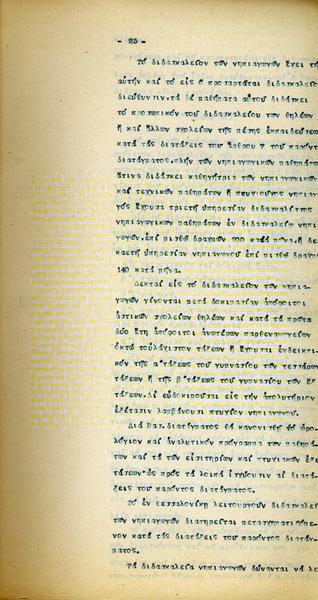 - 25 -
Τό διδασκαλεῖον τῶν νηπιαγωγῶν ἔχει τή
αὐτήν καί τό εἰς ὅ προσαρτᾶται διδασκαλεῖο
διεύθυνσιν, τά δέ μαθήματα αὐτοῦ διδάσκει
τό προσωπικόν τοῦ διδασκαλείου τῶν θηλέων
ἤ καί ἄλλων σχολείων τῆς μέσης ἐκπαιδεύσεως
κατά τάς διατάξεις τοῦ ἄρθρου 7 τοῦ παρόντ
διατάγματος, πλήν τῶν νηπιαγωγικῶν μαθημάτων
ἅτινα διδάσκει καθηγήτρια τῶν νηπιαγωγικῶν
καί τεχνικῶν μαθημάτων ἤ πτυχιοῦχος νηπιαγω
γός ἔχουσα τριετῆ ὑπηρεσίαν διδασκαλίσσης
νηπιαγωγικῶν μαθημάτων ἐν διδασκαλείῳ νηπια
γωγῶν, ἐπί μισθῷ δραχμῶν κατά μῆνα, ἤ δε
καετῆ ὑπηρεσίαν νηπιαγωγοῦ ἐπί μισθῷ δραχμ
140 κατά μῆνα.
Δεκταί εἰς τό διδασκαλεῖον τῶν νηπια
γωγῶν γίνονται μετά δοκιμασίαν ἀπόφοιτοι
ἀστικῶν σχολείων θηλέων καί κατά τά πρῶτα
δύο ἔτη ἀπόφοιτοι ἀνωτέρων παρθεναγωγείων
ὀκτώ τοὐλάχιστον τάξεων ἤ ἔχουσαι ἐνδεικτι
κόν τῆς α'τάξεως τοῦ γυμνασίου τῶν τεσσάρων
τάξεων ἤ τῆς β'τάξεως τοῦ γυμνασίου τῶν ἕξ
τάξεων. Αἱ εὐδοκιμοῦσαι εἰς τήν ἀπολυτήριον
ἐξέτασιν λαμβάνουσι πτυχίον νηπιαγωγοῦ.
Διά Βασ. διατάγματος θά κανονισθῇ τό ὡρο
λόγιον καί ἀναλυτικόν πρόγραμμα τῶν μαθημά
των καί τά τῶν εἰσιτηρίων καί πτυχιακῶν ἐξε
τάσεων· ὡς πρός τά λοιπά ἰσχύουσιν αἱ διατά
ξεις τοῦ παρόντος διατάγματος.
Τό ἐν Θεσσαλονίκῃ λειτουργοῦν διδασκαλεῖ
τῶν νηπιαγωγῶν διατηρεῖται μετασχηματιζόμε
νον κατά τάς διατάξεις τοῦ παρόντος διατάγ
ματος.
Τά διδασκαλεῖα νηπιαγωγῶν δύνανται νά λε